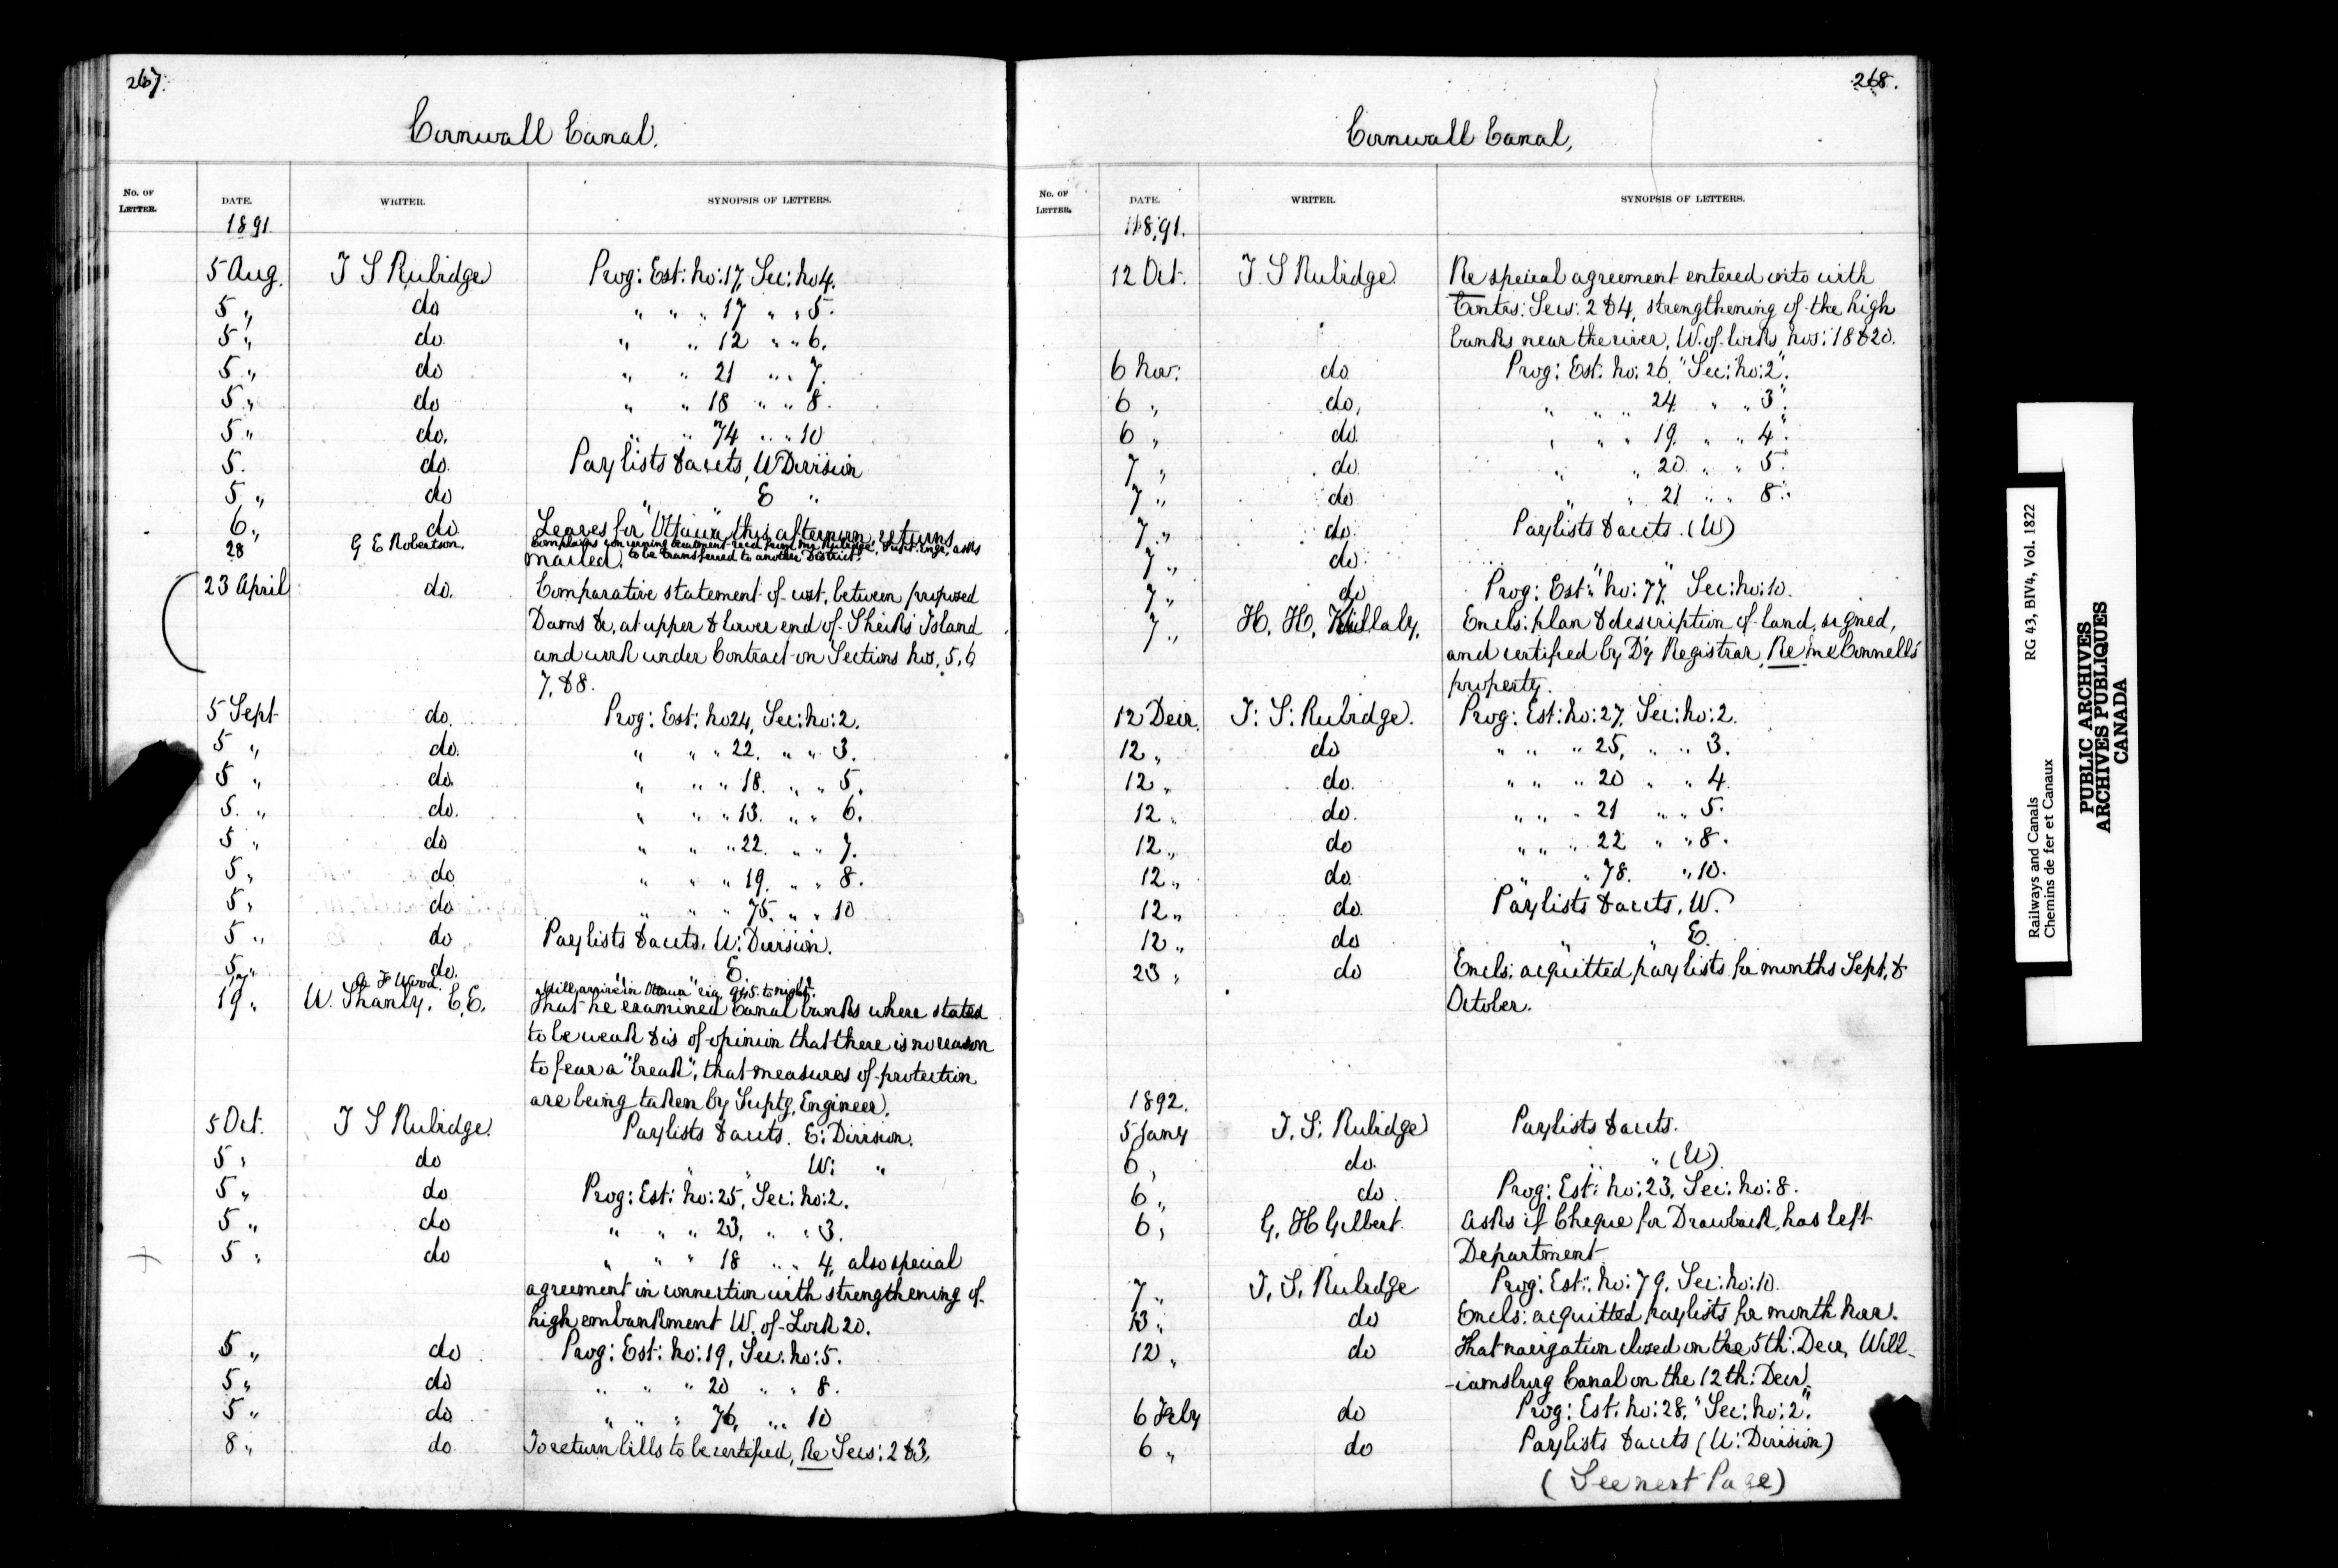 267.
Cornwall Canal.
No. OF LETTER. DATE. WRITER. SYNOPSIS OF LETTERS.
1891.
5 Aug. T S Rubidge Prog: Est: No: 17, Sec: No 4.
5 " do " " " 17 " " 5.
5 " do. " " 12 " " 6.
5 " do " " 21 " " 7.
5 " do " " 18 " " 8.
5 " do. " " 74 " " 10
5. do. Paylists & accts, W Division
5 " do " " E "
6 " do Leaves for Ottawa this afternoon, returns
28 G E Robertson. Complains concerning treatment recd from Mr Rubidge, Supt. Engr, asks
mailed. to be transferred to another District.
23 April do. Comparative statement of cost, between proposed
Dams &c, at upper & lower end of Sheiks Island
and work under Contract on Sections Nos, 5, 6
7, & 8.
5 Sept do. Prog: Est: No 24, Sec: No: 2.
5 " do. " " " 22. " " 3.
5 " do. " " " 18. " " 5.
5. " do. " " " 13. " " 6.
5 " do " " " 22. " " 7.
5 " do " " " 19. " " 8.
5 " do " " " 75. " " 10
5 " do Paylists & accts. W: Division.
5 " do. " " E. "
17 " A F Wood. Will arrive in Ottawa 9.45 to night.
19 " W. Shanly, C.E. That he examined Canal banks where stated
to be weak & is of opinion that there is no reason
to fear a "break", that measures of protection
are being taken by Suptg, Engineer.
5 Oct. T S Rubidge. Paylists & accts. E: Division.
5 " do " " W: "
5 " do Prog: Est: No: 25, Sec: No: 2.
5 " do " " " 23, " " 3.
+ 5 " do " " " 18 " " 4, also special
agreement in connection with strengthening of
high embankment W. of Lock 20.
5 " do Prog: Est: No: 19, Sec: No: 5.
5 " do " " " 20 " " 8.
5 " do " " " 76, " " 10
8 " do To return bills to be certified, Re Secs: 2 & 3.
268.
Cornwall Canal,
No. OF LETTER. DATE. WRITER. SYNOPSIS OF LETTERS.
1891.
12 Oct. T S Rubidge. Re special agreement entered into with
Contrs: Secs: 2 & 4, strengthening of the high
banks near the river, W. of locks Nos: 18 & 20.
6 Nov: do Prog: Est: No: 26, "Sec: No: 2".
6 " do, " " " 24. " " 3".
6 " do. " " " 19. " " 4".
7 " do " " 20. " " 5.
7 " do " " 21 " " 8".
7 " do. Paylists & accts. (W)
7 " do. " "
7 " do Prog: Est: No: 77, Sec: No: 10.
7 " H. H. Killaly. Encls: plan & description of land, signed,
and certified by D'y Registrar, Re McConnells
property.
12 Decr. T: S: Rubidge. Prog: Est: No: 27, Sec: No: 2.
12 " do " " " 25, " " 3.
12 " do. " " " 20 " " 4.
12 " do. " " " 21 " " 5.
12 " do " " " 22 " " 8.
12 " do. " " 78. " 10.
12 " do. Paylists & accts, W.
12 " do " " E.
23 " do Encls: acquitted paylists for months Sept, &
October.
1892.
5 Jany T. S: Rubidge Paylists & accts.
6 " do. " " (W)
6 " do. Prog: Est: No: 23, Sec: No: 8.
6 " G. H Gilbert. Asks if Cheque for Drawback, has left
Department
7 " T. S. Rubidge Prog: Est: No: 79, Sec: No: 10.
13 " do Encls: acquitted paylists for month Nov.
12 " do That navigation closed on the 5th: Decr, Will-
-iamsburg Canal on the 12th: Decr.
6 Feby do Prog: Est: No: 28, "Sec: No: 2".
6 " do Paylists & accts (W: Division)
(See next Page)
Railways and Canals RG 43, BIV4, Vol. 1822
Chemins de fer et Canaux
PUBLIC ARCHIVES
ARCHIVES PUBLIQUES
CANADA